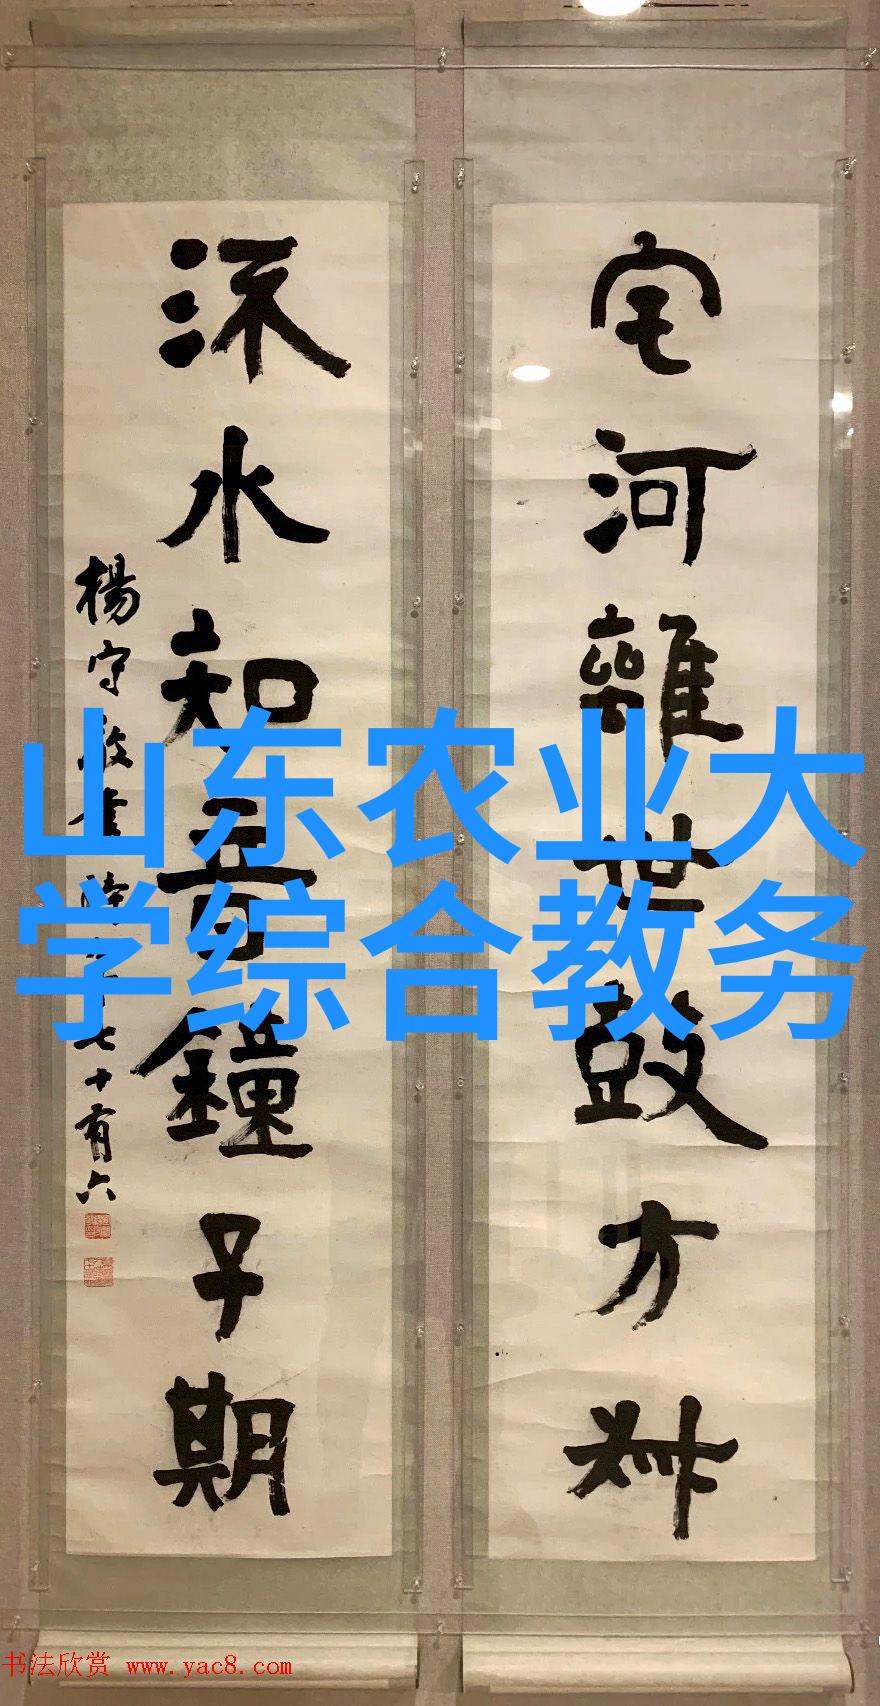 宅河離世鼓方叔
流水知音鐘子期
楊守敬書時年七十有六
山东农业大
学综合教务
书法欣赏 www.yac8.com